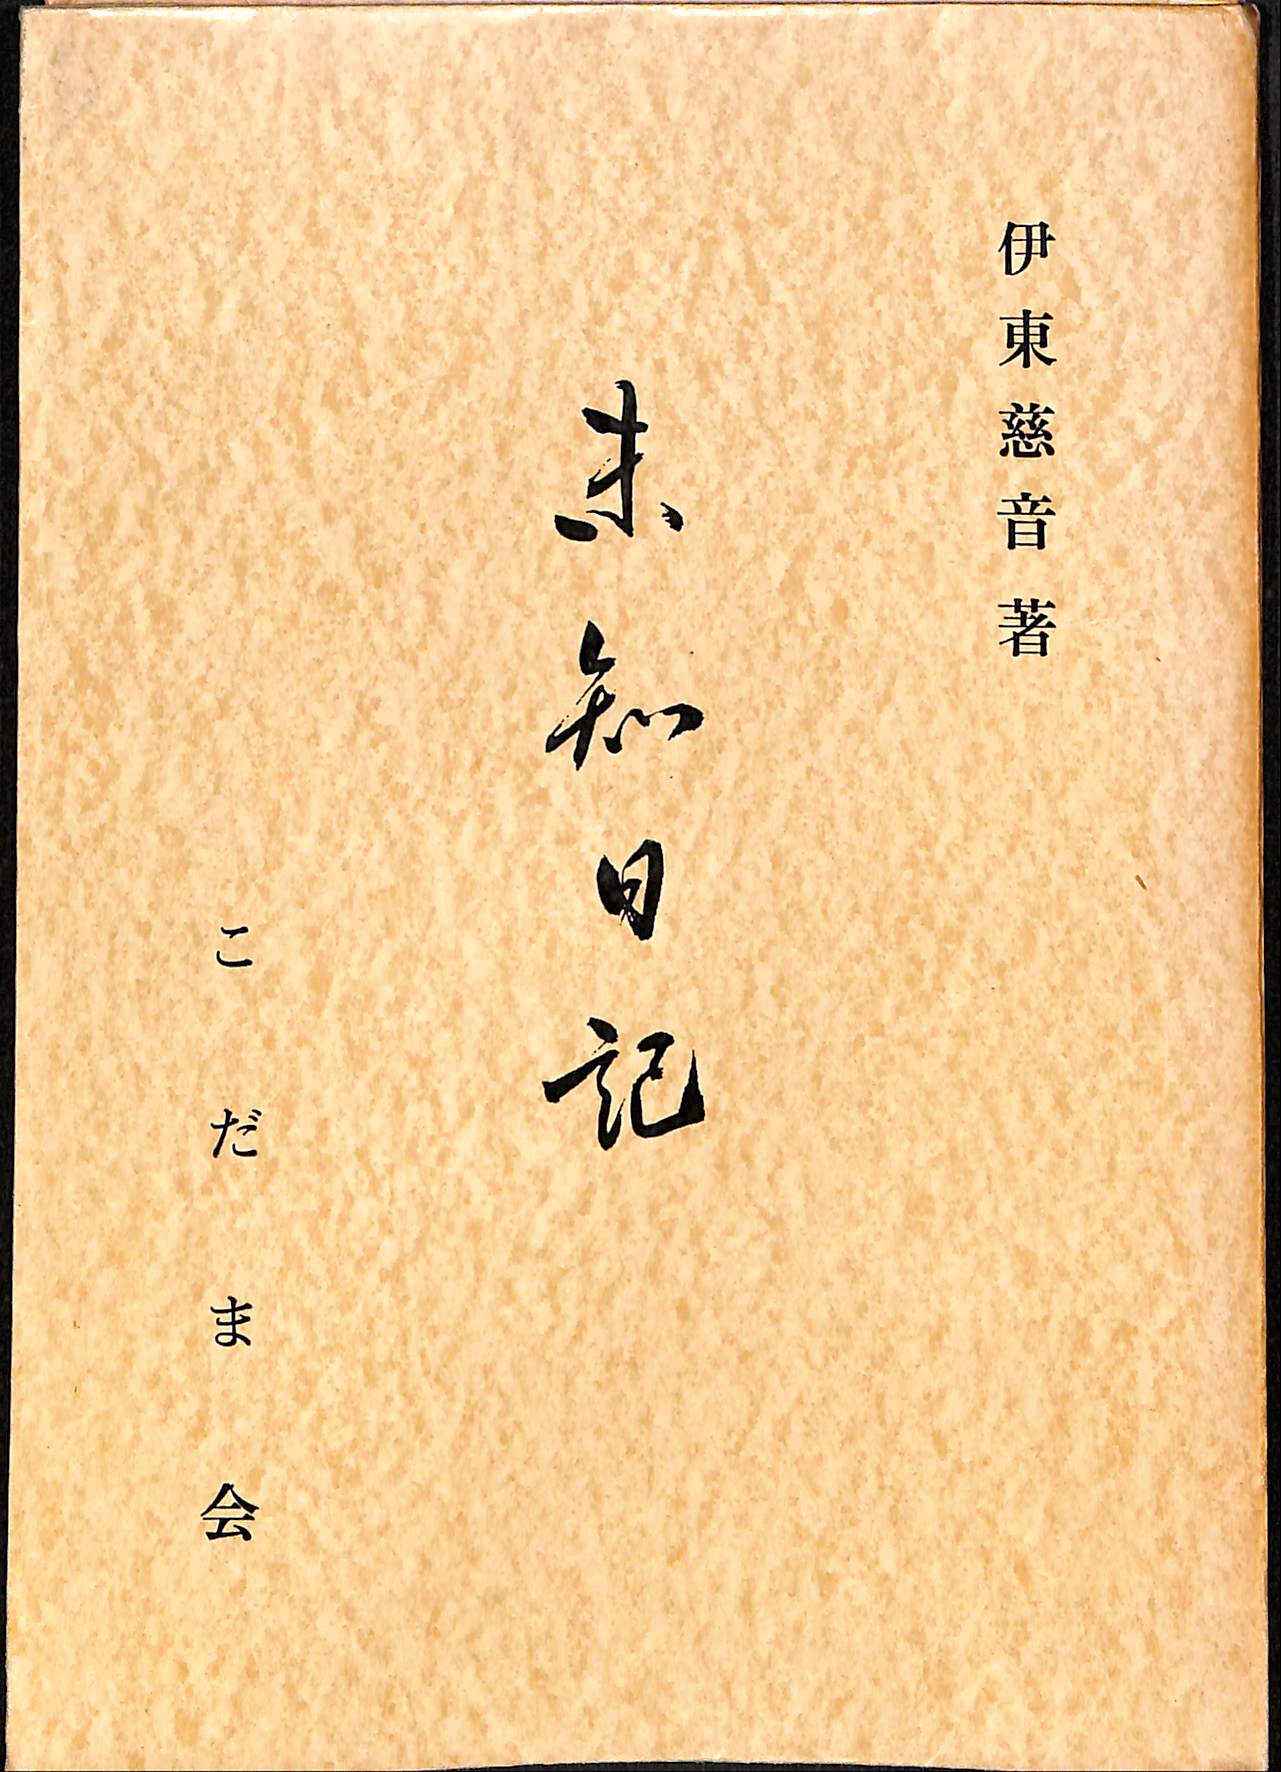 伊東慈音著
未知日記
こだま会